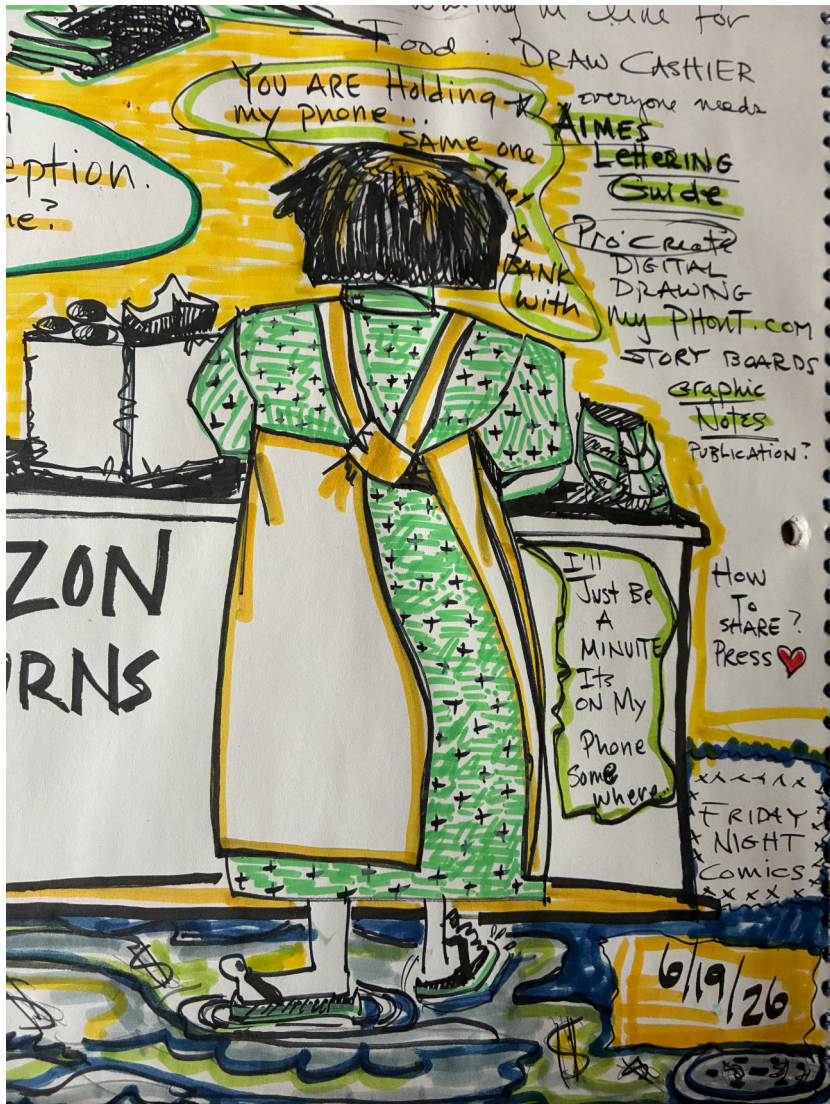 Waiting in line for
Food : DRAW CASHIER
YOU ARE Holding
my phone...
SAME one
They
BANK
with
eption.
ne?
everyone needs
AIMES
LETTERING
Guide
Procreate
DIGITAL
DRAWING
my PHONT.COM
STORY BOARDS
Graphic
Notes
PUBLICATION?
ZON
URNS
I'll
Just Be
A
MINUITE
Its
ON My
Phone
Some
where.
How
To
SHARE?
Press
FRIDAY
NIGHT
Comics
6/19/26
$
$
$